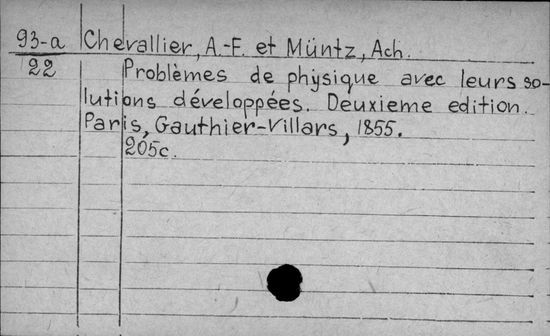 93-a Chevallier, A.-E. et Müntz, Ach.
22 Problèmes de physique avec leurs so-
lutions développées. Deuxieme edition.
Paris, Gauthier-Villars, 1855.
205c.